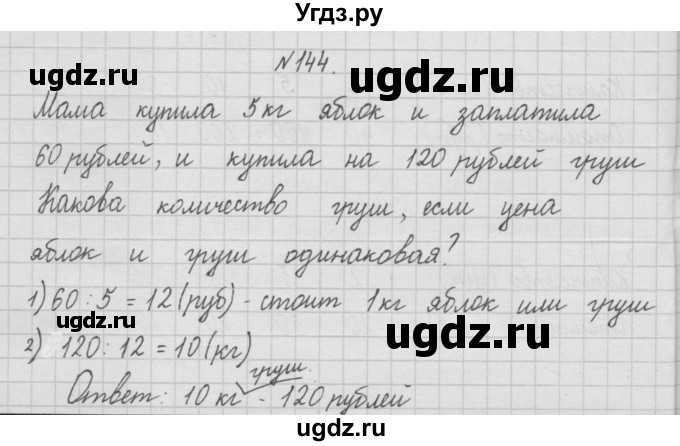 Угдз.ру
№144.
ugdz.ru ugdz.ru
Мама купила 5кг яблок и заплатила
60 рублей, и купила на 120 рублей груш
ugdz.ru ugdz.ru
Какова количество груш, если цена
яблок и груш одинаковая?
ugdz.ru ugdz.ru
1) 60 : 5 = 12 (руб) - стоит 1кг яблок или груш
ugdz.ru ugdz.ru
2) 120 : 12 = 10 (кг)
груш.
Ответ: 10 кг - 120 рублей
ugdz.ru ugdz.ru